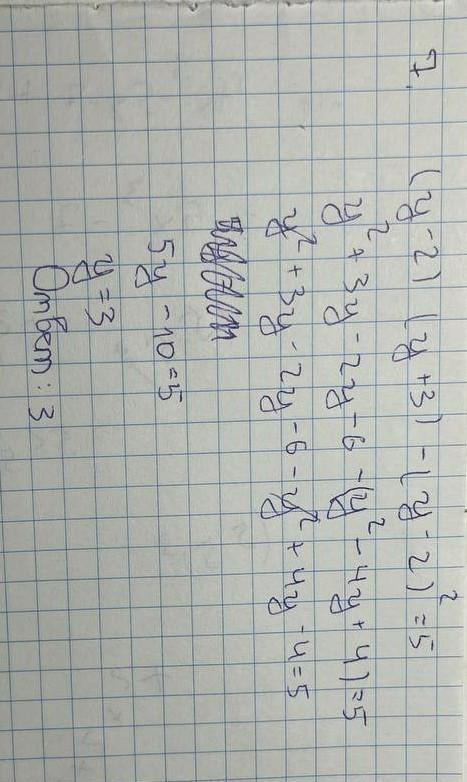 7.
(y-2)(y+3)-(y-2)²=5
y²+3y-2y-6-(y²-4y+4)=5
y²+3y-2y-6-y²+4y-4=5
5y-10=5
y=3
Ответ: 3